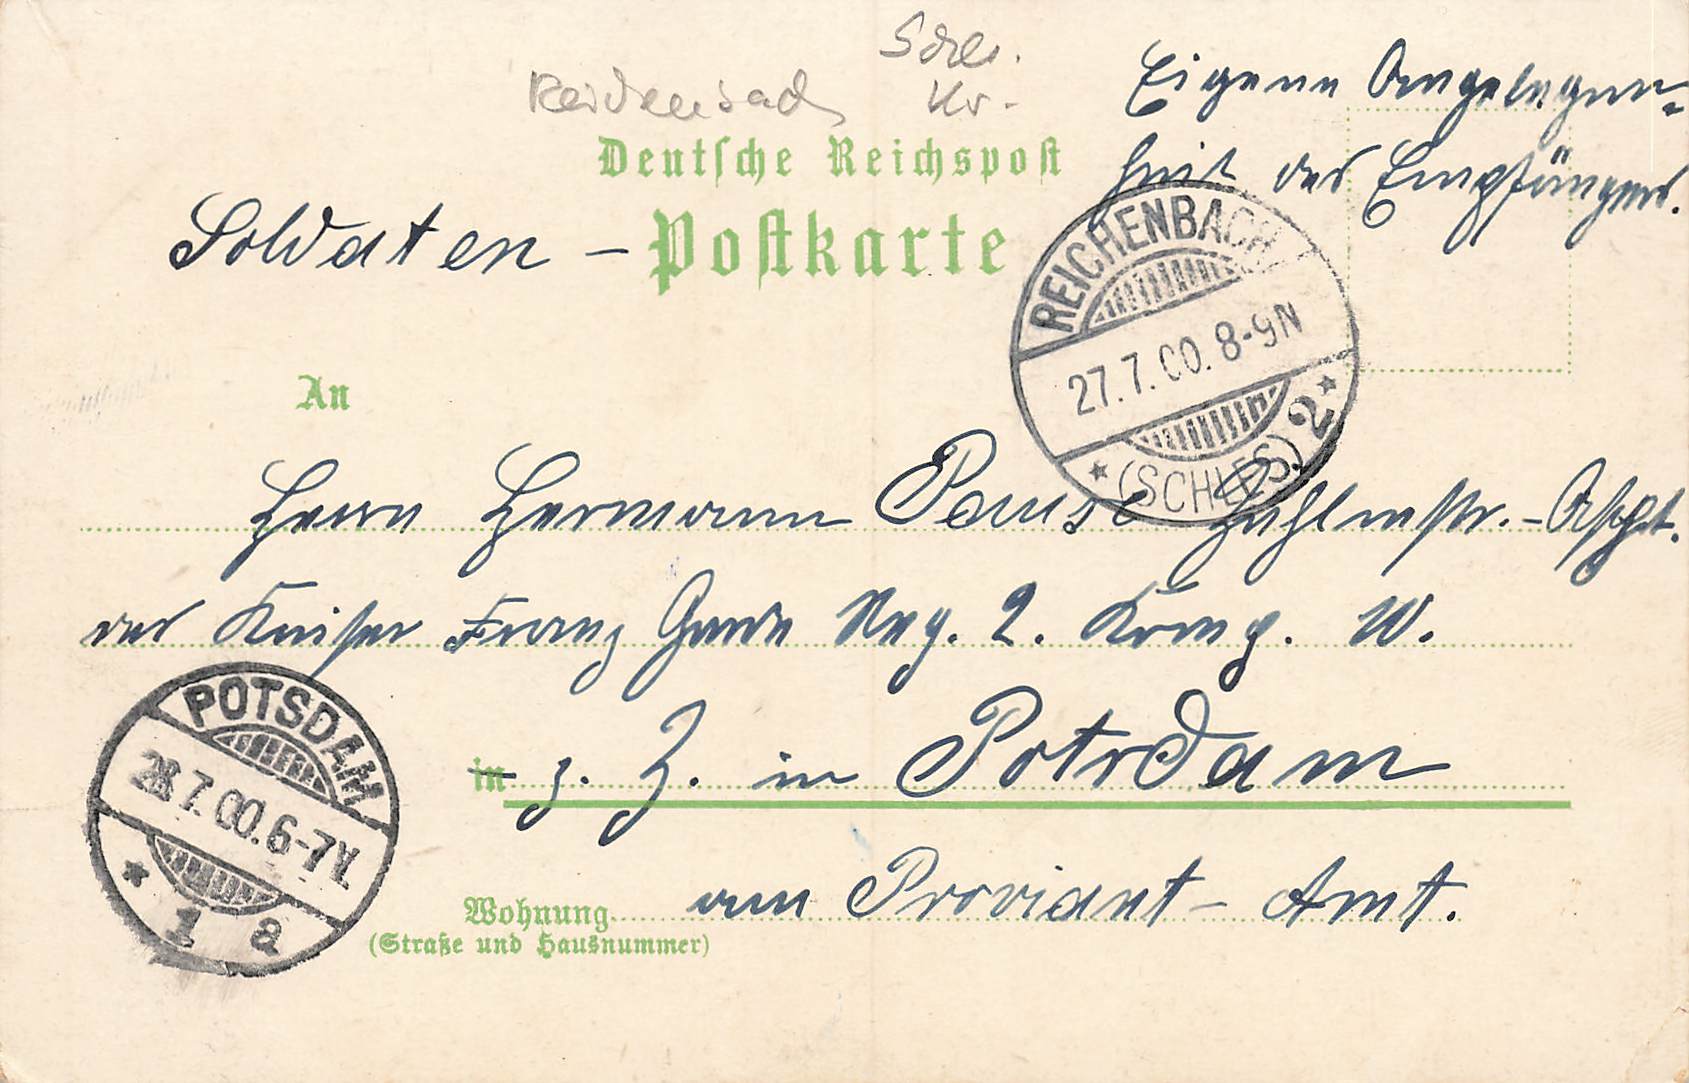 Schles.
Reichenbach Kr.
Eigene Angelegen-
heit des Empfängers.
Deutsche Reichspost
Soldaten - Postkarte
REICHENBACH
27.7.00. 8-9N
* (SCHLES) 2 *
An
Herrn Hermann Pause Zahlmstr.-Aspt.
des Kaiser Franz Garde Reg. 2. Komp. W.
in z. Z. in Potsdam
POTSDAM
28.7.00.6-7V.
* 1 a
Wohnung am Proviant-Amt.
(Straße und Hausnummer)